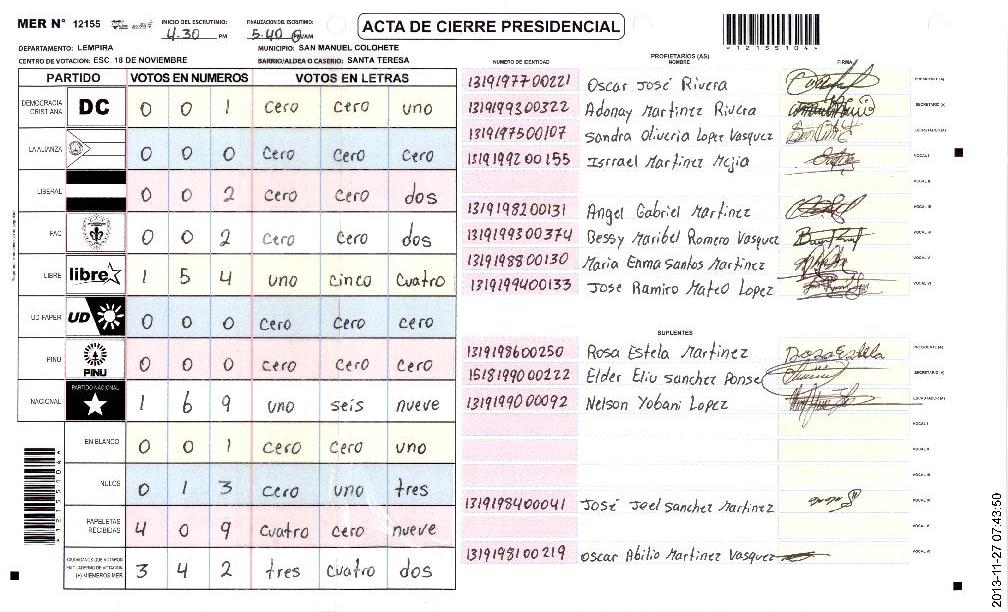 MER N° 12155
INICIO DEL ESCRUTINIO:
4:30 PM
FINALIZACION DEL ESCRUTINIO:
5:40 PM/AM
ACTA DE CIERRE PRESIDENCIAL
*12155104*
DEPARTAMENTO: LEMPIRA
MUNICIPIO: SAN MANUEL COLOHETE
CENTRO DE VOTACION: ESC. 18 DE NOVIEMBRE
BARRIO/ALDEA O CASERIO: SANTA TERESA
PARTIDO VOTOS EN NUMEROS VOTOS EN LETRAS
DEMOCRACIA CRISTIANA DC 0 0 1 cero cero uno
LA ALIANZA 0 0 0 cero cero cero
LIBERAL 0 0 2 cero cero dos
PAC 0 0 2 cero cero dos
LIBRE libre 1 5 4 uno cinco cuatro
UD-FAPER UD 0 0 0 cero cero cero
PINU PINU 0 0 0 cero cero cero
NACIONAL PARTIDO NACIONAL 1 6 9 uno seis nueve
EN BLANCO 0 0 1 cero cero uno
NULOS 0 1 3 cero uno tres
PAPELETAS RECIBIDAS 4 0 9 cuatro cero nueve
CIUDADANOS QUE VOTARON EN CUADERNO DE VOTACION (+) MIEMBROS MER 3 4 2 tres cuatro dos
NUMERO DE IDENTIDAD
PROPIETARIOS (AS)
NOMBRE
FIRMA
1319197700221 Oscar José Rivera PRESIDENTE (A)
1319199300322 Adonay Martinez Rivera SECRETARIO (A)
1319197500107 Sandra Oliveria Lopez Vasquez ESCRUTADOR (A)
1319199200155 Isrrael Martinez Mejia VOCAL I
VOCAL II
1319198200131 Angel Gabriel Martinez VOCAL III
1319199300374 Bessy Maribel Romero Vasquez VOCAL IV
1319198800130 Maria Enma Santos Martinez VOCAL V
1319199400133 Jose Ramiro Mateo Lopez VOCAL VI
SUPLENTES
1319198600250 Rosa Estela Martinez PRESIDENTE (A)
1518199000222 Elder Eliu Sanchez Ponse SECRETARIO (A)
1319199000092 Nelson Yobani Lopez ESCRUTADOR (A)
VOCAL I
VOCAL II
VOCAL III
1319198400041 José Joel Sanchez Martinez VOCAL IV
VOCAL V
1319198100219 Oscar Abilio Martinez Vasquez VOCAL VI
*12155104*
2013-11-27 07:43:50